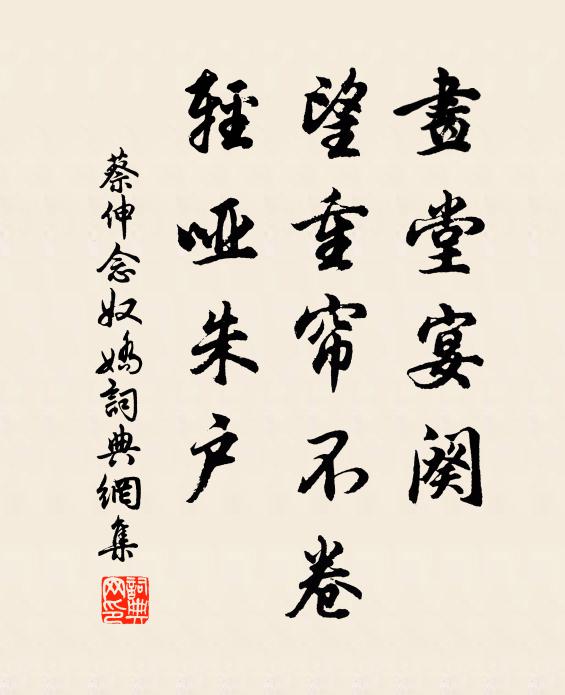 畫堂宴闋
望重帘不卷
輕啞朱户
蔡伸念奴嬌詞典網集
詞典網印